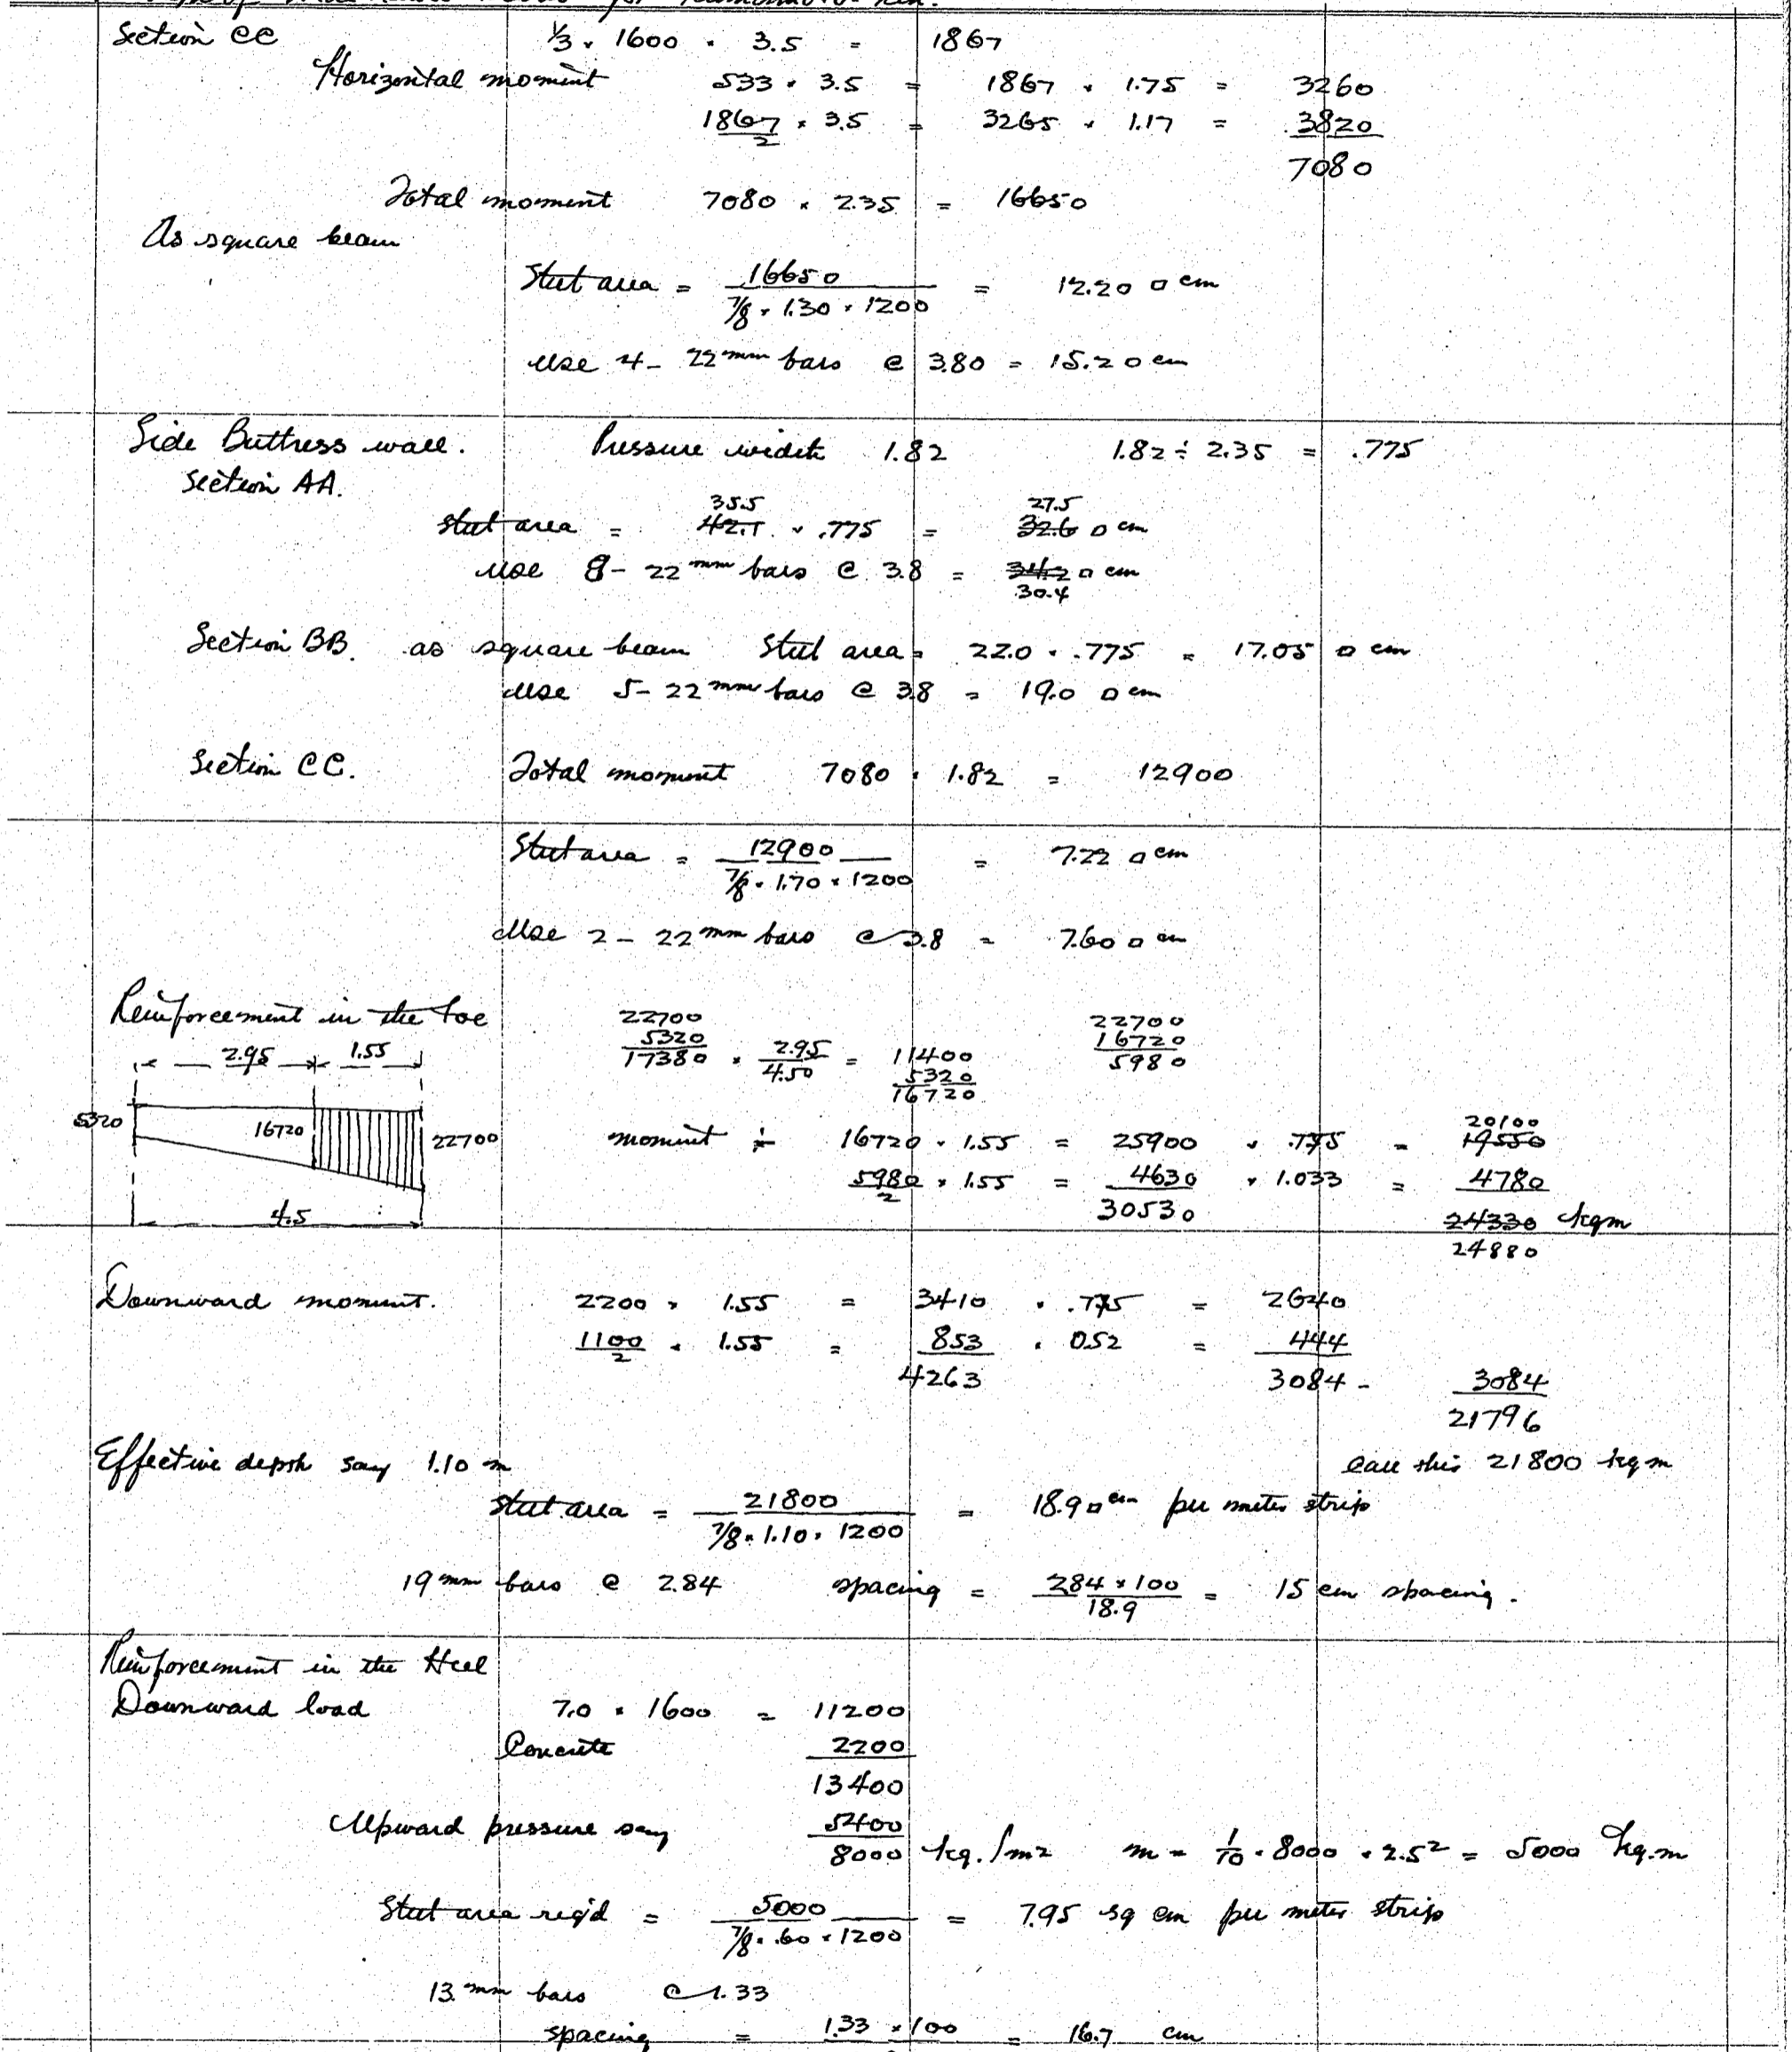 Section CC 1/3 × 1600 × 3.5 = 1867
Horizontal moment 533 × 3.5 = 1867 × 1.75 = 3260
1867/2 × 3.5 = 3265 × 1.17 = 3820
7080
Total moment 7080 × 2.35 = 16650
As square beam
Steel area = 16650 / (7/8 × 1.30 × 1200) = 12.20 □ cm
Use 4 - 22 mm bars @ 3.80 = 15.2 □ cm
Side Buttress wall. Pressure width 1.82 1.82 ÷ 2.35 = .775
Section AA.
35.5 27.5
Steel area = 42.1 × .775 = 32.6 □ cm
Use 8 - 22 mm bars @ 3.8 = 34.2 □ cm
30.4
Section BB. as square beam Steel area = 22.0 × .775 = 17.05 □ cm
Use 5 - 22 mm bars @ 3.8 = 19.0 □ cm
Section CC. Total moment 7080 × 1.82 = 12900
Steel area = 12900 / (7/8 × 1.70 × 1200) = 7.22 □ cm
Use 2 - 22 mm bars @ 3.8 = 7.60 □ cm
Reinforcement in the toe 22700 22700
2.95 1.55 5320 16720
17380 × 2.95/4.50 = 11400 5980
5320
16720
5320 16720 22700
20100
moment = 16720 × 1.55 = 25900 × .775 = 19550
5980/2 × 1.55 = 4630 × 1.033 = 4780
4.5 30530 24330 kgm
24880
Downward moment. 2200 × 1.55 = 3410 × .775 = 2640
1100/2 × 1.55 = 853 × 0.52 = 444
4263 3084 - 3084
21796
Effective depth say 1.10 m call this 21800 kgm
Steel area = 21800 / (7/8 × 1.10 × 1200) = 18.9 □ cm per meter strip
19 mm bars @ 2.84 spacing = 284 × 100 / 18.9 = 15 cm spacing.
Reinforcement in the Heel
Downward load 7.0 × 1600 = 11200
Concrete 2200
13400
Upward pressure say 5400
8000 kg./m2 m = 1/10 × 8000 × 2.5² = 5000 kg.m
Steel area req'd = 5000 / (7/8 × .60 × 1200) = 7.95 sq cm per meter strip
13 mm bars @ 1.33
spacing = 1.33 × 100 = 16.7 cm